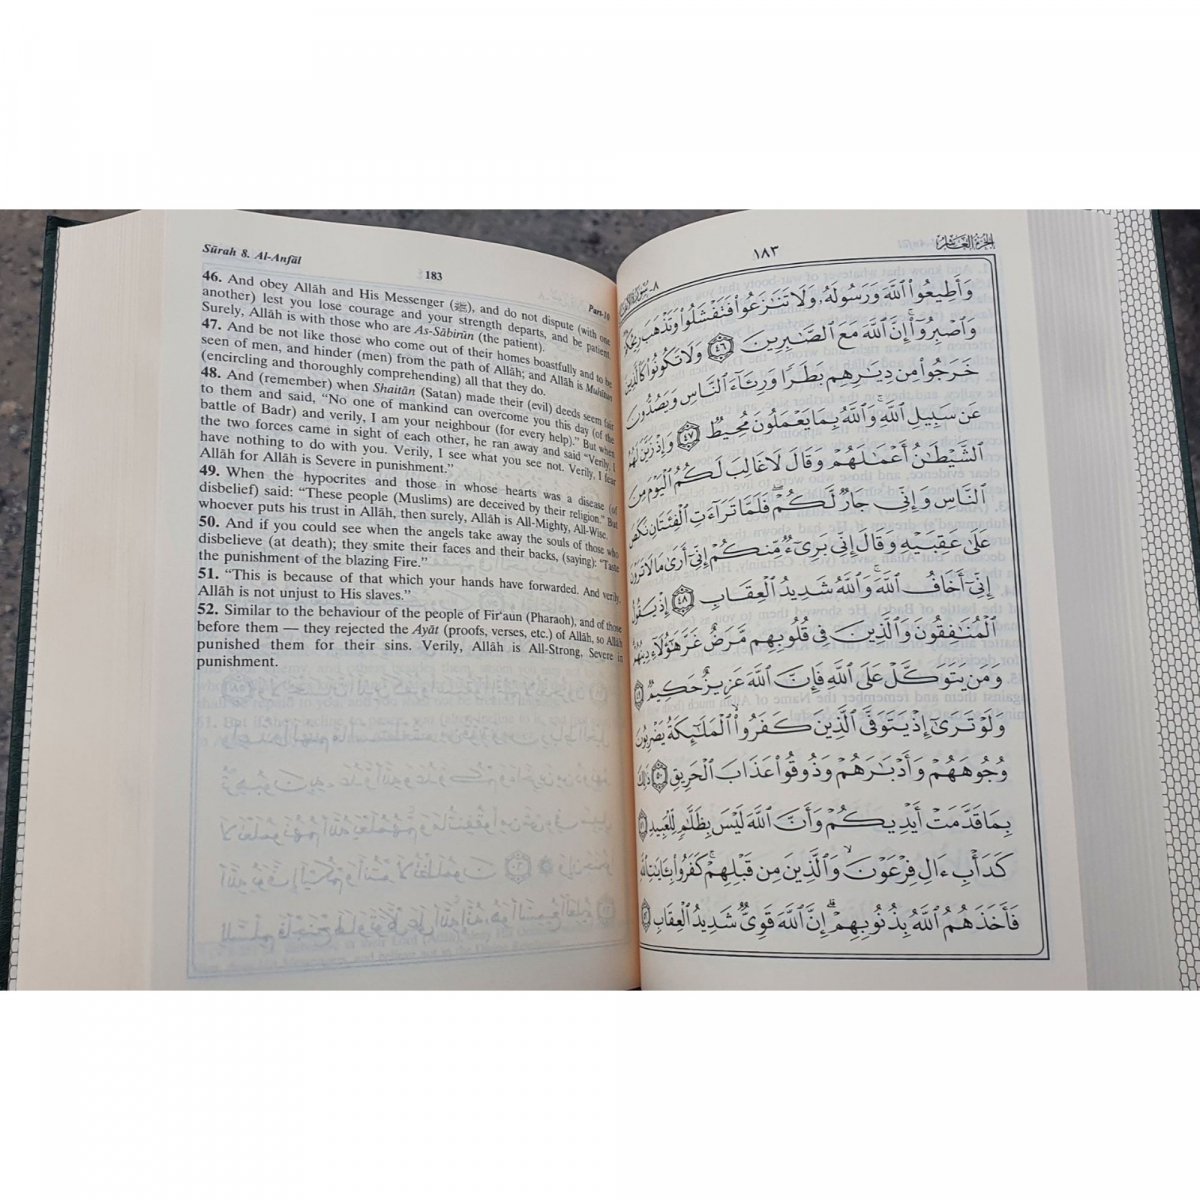 Sūrah 8. Al-Anfāl
183
Part-10
46. And obey Allāh and His Messenger (ﷺ), and do not dispute (with one
another) lest you lose courage and your strength departs, and be patient.
Surely, Allāh is with those who are As-Sābirūn (the patient).
47. And be not like those who come out of their homes boastfully and to be
seen of men, and hinder (men) from the path of Allāh; and Allāh is Muhītun
(encircling and thoroughly comprehending) all that they do.
48. And (remember) when Shaitān (Satan) made their (evil) deeds seem fair
to them and said, "No one of mankind can overcome you this day (of the
battle of Badr) and verily, I am your neighbour (for every help)." But when
the two forces came in sight of each other, he ran away and said "Verily, I
have nothing to do with you. Verily, I see what you see not. Verily, I fear
Allāh for Allāh is Severe in punishment."
49. When the hypocrites and those in whose hearts was a disease (of
disbelief) said: "These people (Muslims) are deceived by their religion." But
whoever puts his trust in Allāh, then surely, Allāh is All-Mighty, All-Wise.
50. And if you could see when the angels take away the souls of those who
disbelieve (at death); they smite their faces and their backs, (saying): "Taste
the punishment of the blazing Fire."
51. "This is because of that which your hands have forwarded. And verily,
Allāh is not unjust to His slaves."
52. Similar to the behaviour of the people of Fir'aun (Pharaoh), and of those
before them — they rejected the Ayāt (proofs, verses, etc.) of Allāh, so Allāh
punished them for their sins. Verily, Allāh is All-Strong, Severe in
punishment.
الجزء العاشر
١٨٣
٨- سورة الأنفال
وَأَطِيعُوا۟ ٱللَّهَ وَرَسُولَهُۥ وَلَا تَنَـٰزَعُوا۟ فَتَفْشَلُوا۟ وَتَذْهَبَ رِيحُكُمْ
وَٱصْبِرُوٓا۟ إِنَّ ٱللَّهَ مَعَ ٱلصَّـٰبِرِينَ ٤٦ وَلَا تَكُونُوا۟ كَٱلَّذِينَ
خَرَجُوا۟ مِن دِيَـٰرِهِم بَطَرًا وَرِئَآءَ ٱلنَّاسِ وَيَصُدُّونَ
عَن سَبِيلِ ٱللَّهِ وَٱللَّهُ بِمَا يَعْمَلُونَ مُحِيطٌ ٤٧ وَإِذْ زَيَّنَ لَهُمُ
ٱلشَّيْطَـٰنُ أَعْمَـٰلَهُمْ وَقَالَ لَا غَالِبَ لَكُمُ ٱلْيَوْمَ مِنَ
ٱلنَّاسِ وَإِنِّى جَارٌ لَّكُمْ فَلَمَّا تَرَآءَتِ ٱلْفِئَتَانِ نَكَصَ
عَلَىٰ عَقِبَيْهِ وَقَالَ إِنِّى بَرِىٓءٌ مِّنكُمْ إِنِّىٓ أَرَىٰ مَا لَا تَرَوْنَ
إِنِّىٓ أَخَافُ ٱللَّهَ وَٱللَّهُ شَدِيدُ ٱلْعِقَابِ ٤٨ إِذْ يَقُولُ
ٱلْمُنَـٰفِقُونَ وَٱلَّذِينَ فِى قُلُوبِهِم مَّرَضٌ غَرَّ هَـٰٓؤُلَآءِ دِينُهُمْ
وَمَن يَتَوَكَّلْ عَلَى ٱللَّهِ فَإِنَّ ٱللَّهَ عَزِيزٌ حَكِيمٌ ٤٩
وَلَوْ تَرَىٰٓ إِذْ يَتَوَفَّى ٱلَّذِينَ كَفَرُوا۟ ٱلْمَلَـٰٓئِكَةُ يَضْرِبُونَ
وُجُوهَهُمْ وَأَدْبَـٰرَهُمْ وَذُوقُوا۟ عَذَابَ ٱلْحَرِيقِ ٥٠ ذَٰلِكَ
بِمَا قَدَّمَتْ أَيْدِيكُمْ وَأَنَّ ٱللَّهَ لَيْسَ بِظَلَّـٰمٍ لِّلْعَبِيدِ ٥١
كَدَأْبِ ءَالِ فِرْعَوْنَ وَٱلَّذِينَ مِن قَبْلِهِمْ كَفَرُوا۟ بِـَٔايَـٰتِ ٱللَّهِ
فَأَخَذَهُمُ ٱللَّهُ بِذُنُوبِهِمْ إِنَّ ٱللَّهَ قَوِىٌّ شَدِيدُ ٱلْعِقَابِ ٥٢